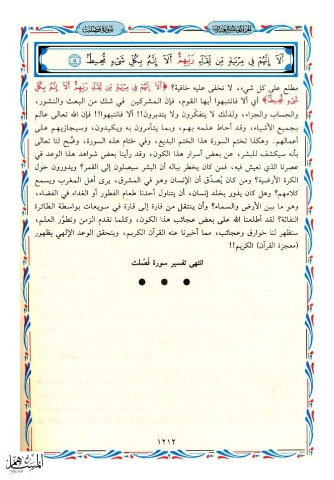 الجزء الخامس والعشرون
سورة فصلت
أَلَا إِنَّهُمْ فِي مِرْيَةٍ مِّن لِّقَاءِ رَبِّهِمْ أَلَا إِنَّهُ بِكُلِّ شَيْءٍ مُّحِيطٌ
مطلع على كل شيء، لا تخفى عليه خافية؟ ﴿أَلَا إِنَّهُمْ فِي مِرْيَةٍ مِّن لِّقَاءِ رَبِّهِمْ أَلَا إِنَّهُ بِكُلِّ
شَيْءٍ مُّحِيطٌ﴾ أي ألا فانتبهوا أيها القوم، فإن المشركين في شك من البعث والنشور،
والحساب والجزاء، ولذلك لا يتفكرون ولا يتدبرون!! ألا فانتبهوا!! فإن الله تعالى عالم
بجميع الأشياء، وقد أحاط علمه بهم، وبما يتآمرون به ويكيدون، وسيجازيهم على
أعمالهم. وهكذا تختم السورة هذا الختم البديع، وفي ختام هذه السورة، وضّح لنا تعالى
بأنه سيكشف للبشر، عن بعض أسرار هذا الكون، وقد رأينا بعض شواهد هذا الوعد في
عصرنا الذي نعيش فيه، فمن كان يخطر بباله أن البشر سيصلون إلى القمر؟ ويدورون حول
الكرة الأرضية؟ ومن كان يُصدّق أن الإنسان وهو في المشرق، يرى أهل المغرب ويسمع
كلامهم؟ وهل كان يدور بخلد إنسان، أن يتناول أحدنا طعام الفطور أو الغداء في الفضاء،
وهو ما بين الأرض والسماء؟ وأن ينتقل من قارة إلى قارة في سويعات بواسطة الطائرة
النفاثة؟ لقد أطلعنا الله على بعض عجائب هذا الكون، وكلما تقدم الزمن وتطوّر العلم،
ستظهر لنا خوارق وعجائب، مما أخبرنا عنه القرآن الكريم، ويتحقق الوعد الإلهي بظهور
(معجزة القرآن) الكريم!!
انتهى تفسير سورة فُصّلت
١٢١٢